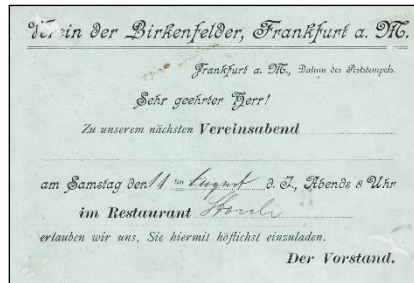 Verein der Birkenfelder, Frankfurt a. M.
Frankfurt a. M., Datum des Poststempels.
Sehr geehrter Herr!
Zu unserem nächsten Vereinsabend
am Samstag den 11 ten August d. J., Abends 8 Uhr
im Restaurant Storch
erlauben wir uns, Sie hiermit höflichst einzuladen.
Der Vorstand.